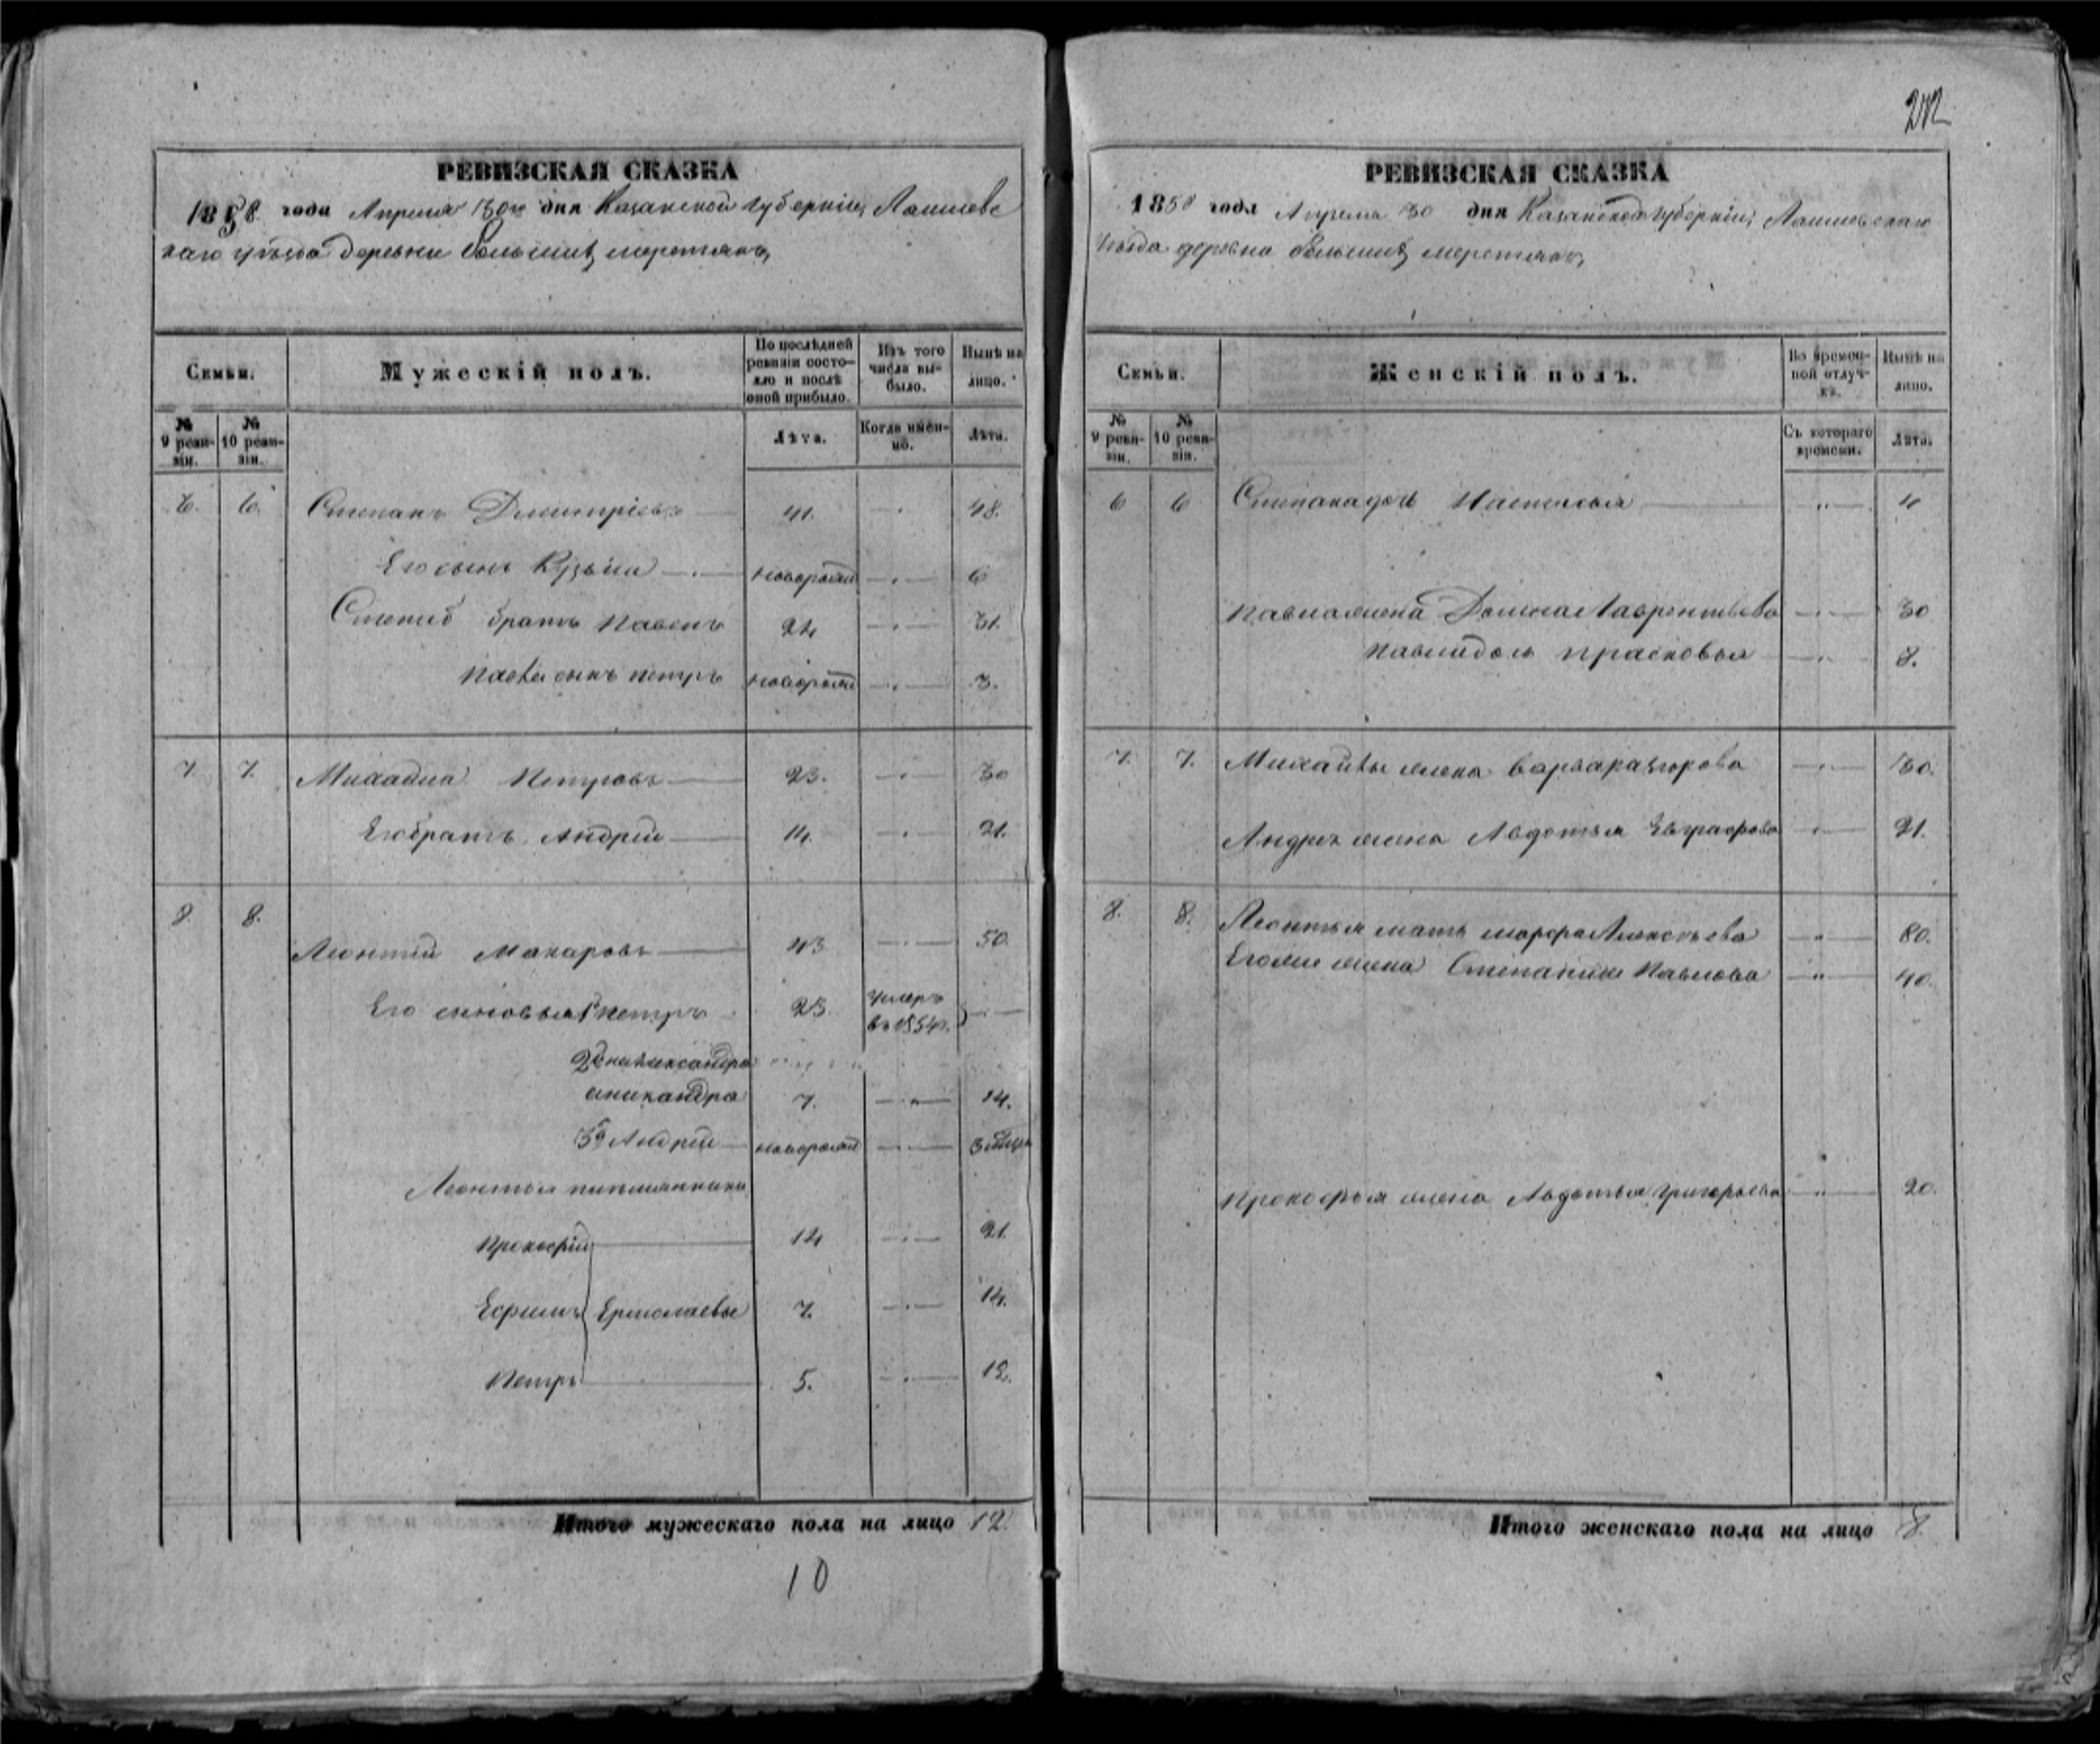 212
РЕВИЗСКАЯ СКАЗКА
1858 года Апреля 30го дня Казанской губерніи, Лаишевс
каго уѣзда деревни большихъ меретякъ,
Семьи.
Мужескій полъ.
По послѣдней ревизіи состояло и послѣ оной прибыло.
Изъ того числа выбыло.
Нынѣ на лицо.
№ 9 ревизіи.
№ 10 ревизіи.
Лѣта.
Когда именно.
Лѣта.
6. 6. Степанъ Дмитріевъ 41. 48.
Его сынъ Кузьма новорожд 6
братъ Павелъ 24 31.
Павла сынъ петръ новорожд 3.
7 7. Михайла Петровъ 23. 30
Его братъ Андрей 14. 21.
8. 8.
Леонтій Макаровъ 43 50.
Его сыновья 1й петръ 25 умеръ
въ 1854г.
Александра
аникандра 7. 14.
3й Андрей новорожд 3 мѣсяц
Леонтья племянники
Прокофій 14 21.
Ефимъ Ермолаевы 7. 14.
Петръ 5. 12.
Итого мужескаго пола на лицо 12.
10
РЕВИЗСКАЯ СКАЗКА
1858 года Апреля 30 дня Казанской губерніи, Лаишевскаго
уѣзда деревна большихъ меретякъ,
Семьи.
Женскій полъ.
Во временной отлучкѣ.
Нынѣ на лицо.
№ 9 ревизіи.
№ 10 ревизіи.
Съ котораго времени.
Лѣта.
6 6 Степана дочь Настасья 4
Павла жена Домна Лаврентьева 30
Павла дочь прасковья 8.
7. 7. Михайлы жена варвара Егорова 30.
Андрея жена Авдотья Евграфова 21.
8. 8. Леонтья мать марфа Алексѣева 80.
Егоже жена Степанида Павлова 40.
Прокофья жена Авдотья григорьева 20.
Итого женскаго пола на лицо 8.